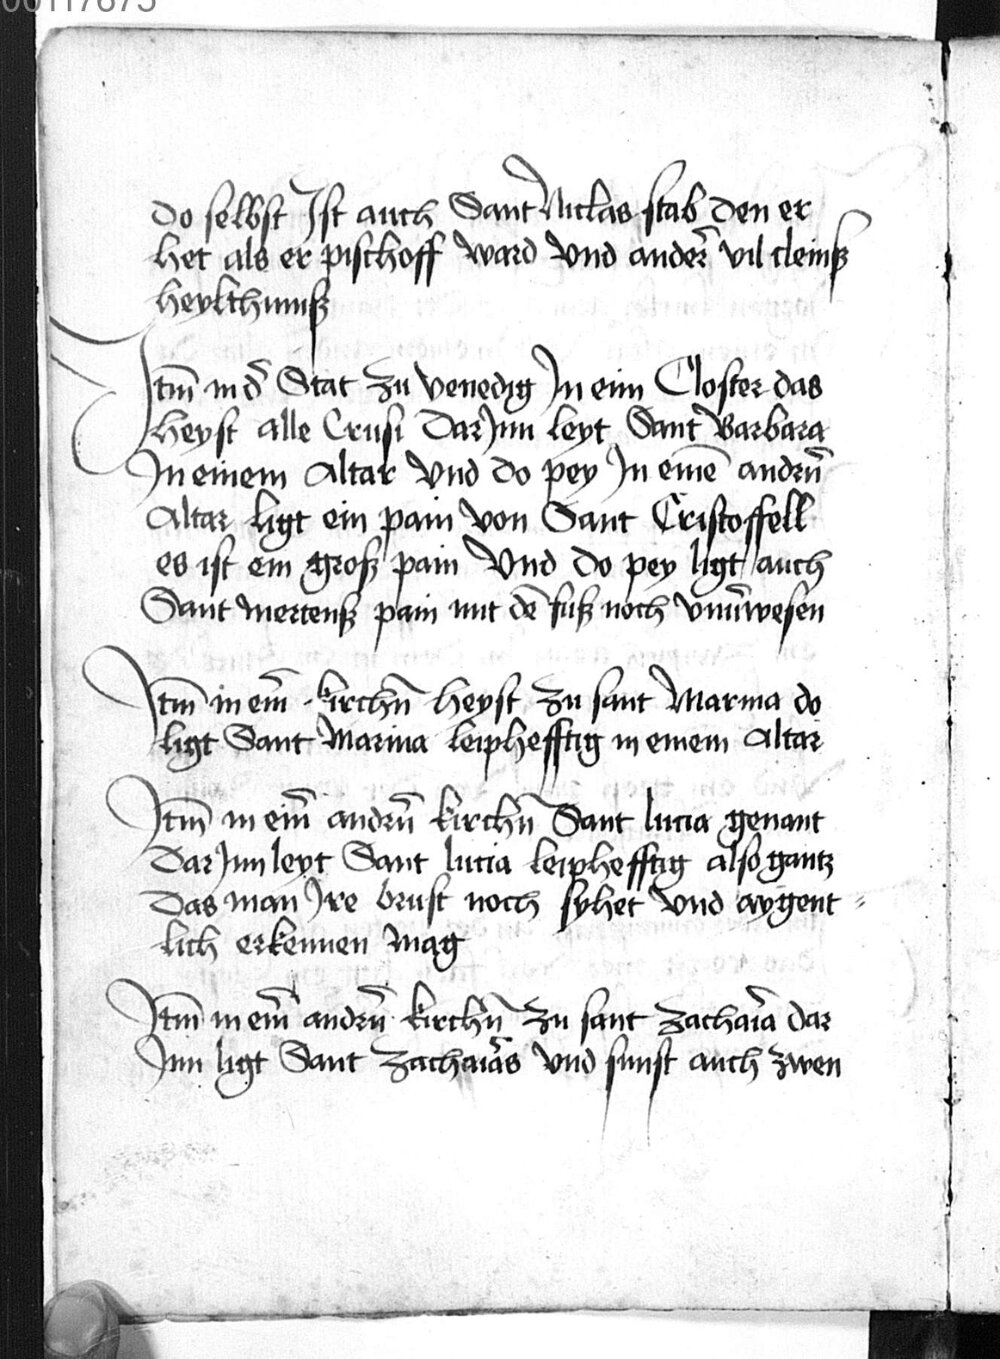 00117875
do selbst Ist auch Sant Niclas stab den er
het als er pischoff ward vnd ander̄ vil cleinß
heylthumß
Itm̄ in d̄ Stat zu venedig In eim Closter das
heyst alle Crusi Dar Inn leyt Sant Barbara
In einem Altar vnd do pey In einē andrn̄
Altar ligt ein pain von Sant Cristoffell
es ist ein groß pain vnd do pey ligt auch
Sant mertenß pain mit dē fuß noch vnūwesen
Itm̄ in eim̄ kirchn̄ heyst zu sant Marina do
ligt Sant Marina leiphefftig in einem Altar
Itm̄ in eim̄ andrn̄ kirchn̄ Sant lucia genant
Dar Inn leyt Sant lucia leiphefftig also gantz
Das man Ire brust noch syhet vnd aygent=
lich erkennen mag
Itm̄ in eim̄ andrn̄ kirchn̄ zu sant zachar̄ia dar
Inn ligt Sant zachar̄ias vnd sunst auch zwen